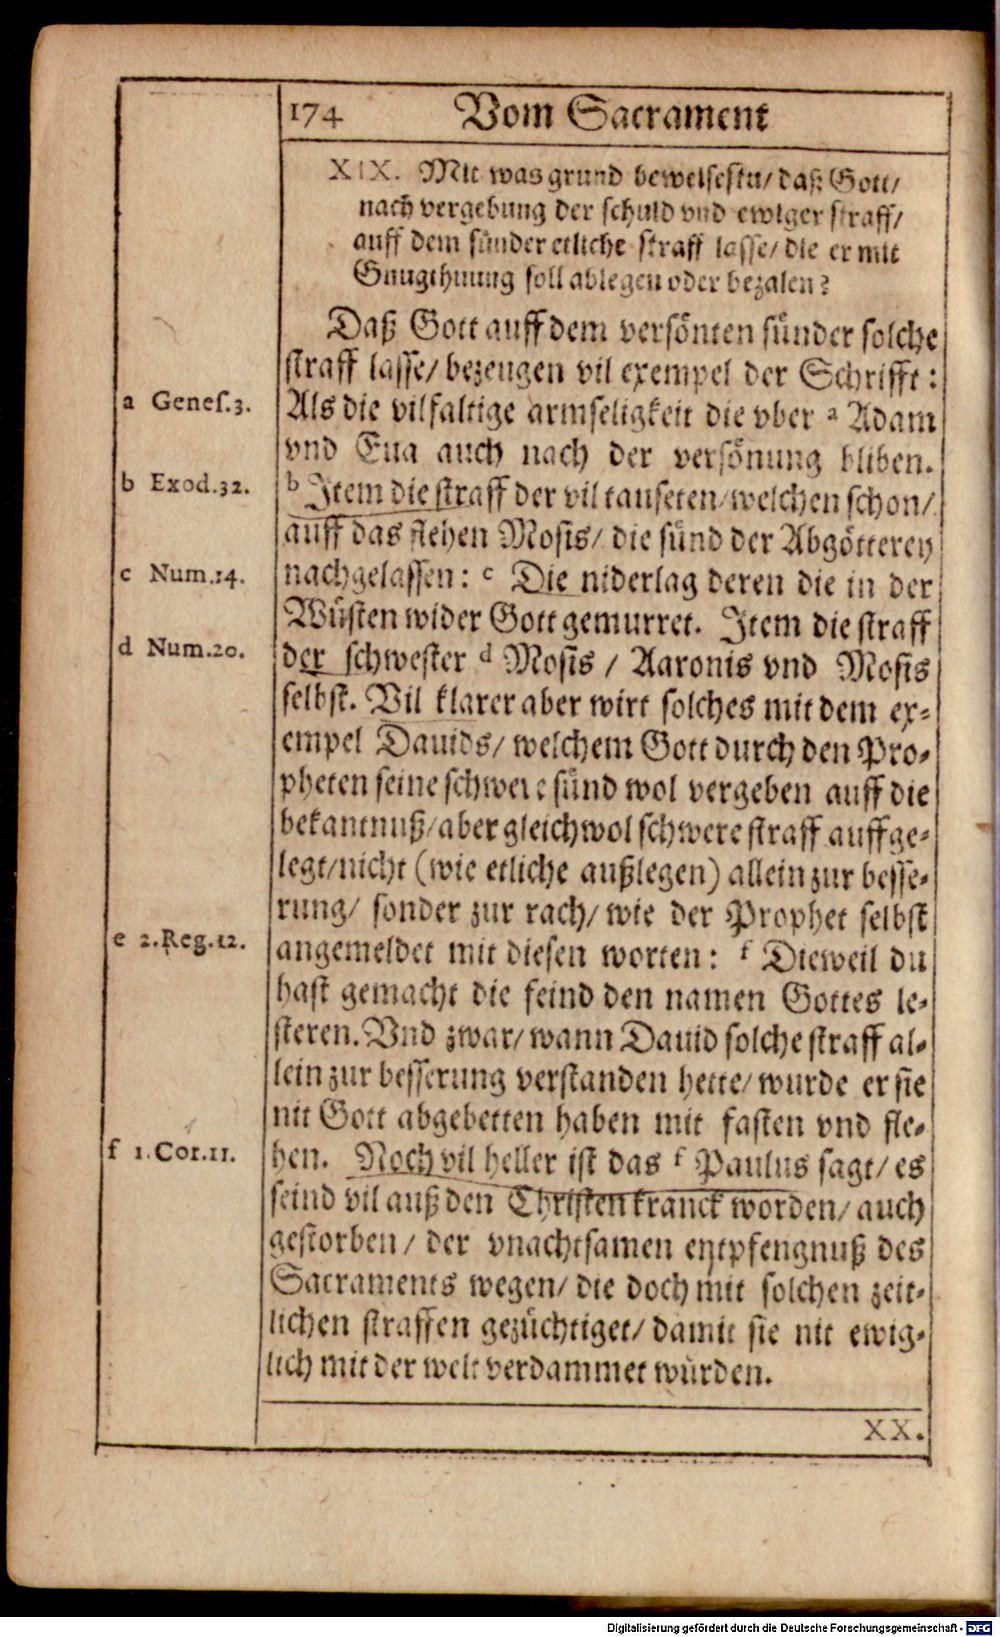 174 Vom Sacrament
XIX. Mit was grund beweisestu/ daß Gott/
nach vergebung der schuld vnd ewiger straff/
auff dem sünder etliche straff lasse/ die er mit
Gnugthuung soll ablegen oder bezalen?
Daß Gott auff dem versönten sünder solche
straff lasse/ bezeugen vil exempel der Schrifft:
a Genes.3.
Als die vilfaltige armseligkeit die vber a Adam
vnd Eua auch nach der versönung bliben.
b Exod.32.
b Item die straff der vil tauseten/ welchen schon/
auff das flehen Mosis/ die sünd der Abgötterey
c Num.14.
nachgelassen: c Die niderlag deren die in der
Wüsten wider Gott gemurret. Item die straff
d Num.20.
der schwester d Mosis / Aaronis vnd Mosis
selbst. Vil klarer aber wirt solches mit dem ex-
empel Dauids/ welchem Gott durch den Pro-
pheten seine schwere sünd wol vergeben auff die
bekantnuß/ aber gleichwol schwere straff auffge-
legt/ nicht (wie etliche außlegen) allein zur besse-
rung/ sonder zur rach/ wie der Prophet selbst
e 2.Reg.12.
angemeldet mit diesen worten: f Dieweil du
hast gemacht die feind den namen Gottes le-
steren. Vnd zwar/ wann Dauid solche straff al-
lein zur besserung verstanden hette/ wurde er sie
nit Gott abgebetten haben mit fasten vnd fle-
f 1.Cor.11.
hen. Noch vil heller ist das f Paulus sagt/ es
seind vil auß den Christen kranck worden/ auch
gestorben/ der vnachtsamen entpfengnuß des
Sacraments wegen/ die doch mit solchen zeit-
lichen straffen gezüchtiget/ damit sie nit ewig-
lich mit der welt verdammet würden.
XX.
Digitalisierung gefördert durch die Deutsche Forschungsgemeinschaft - DFG